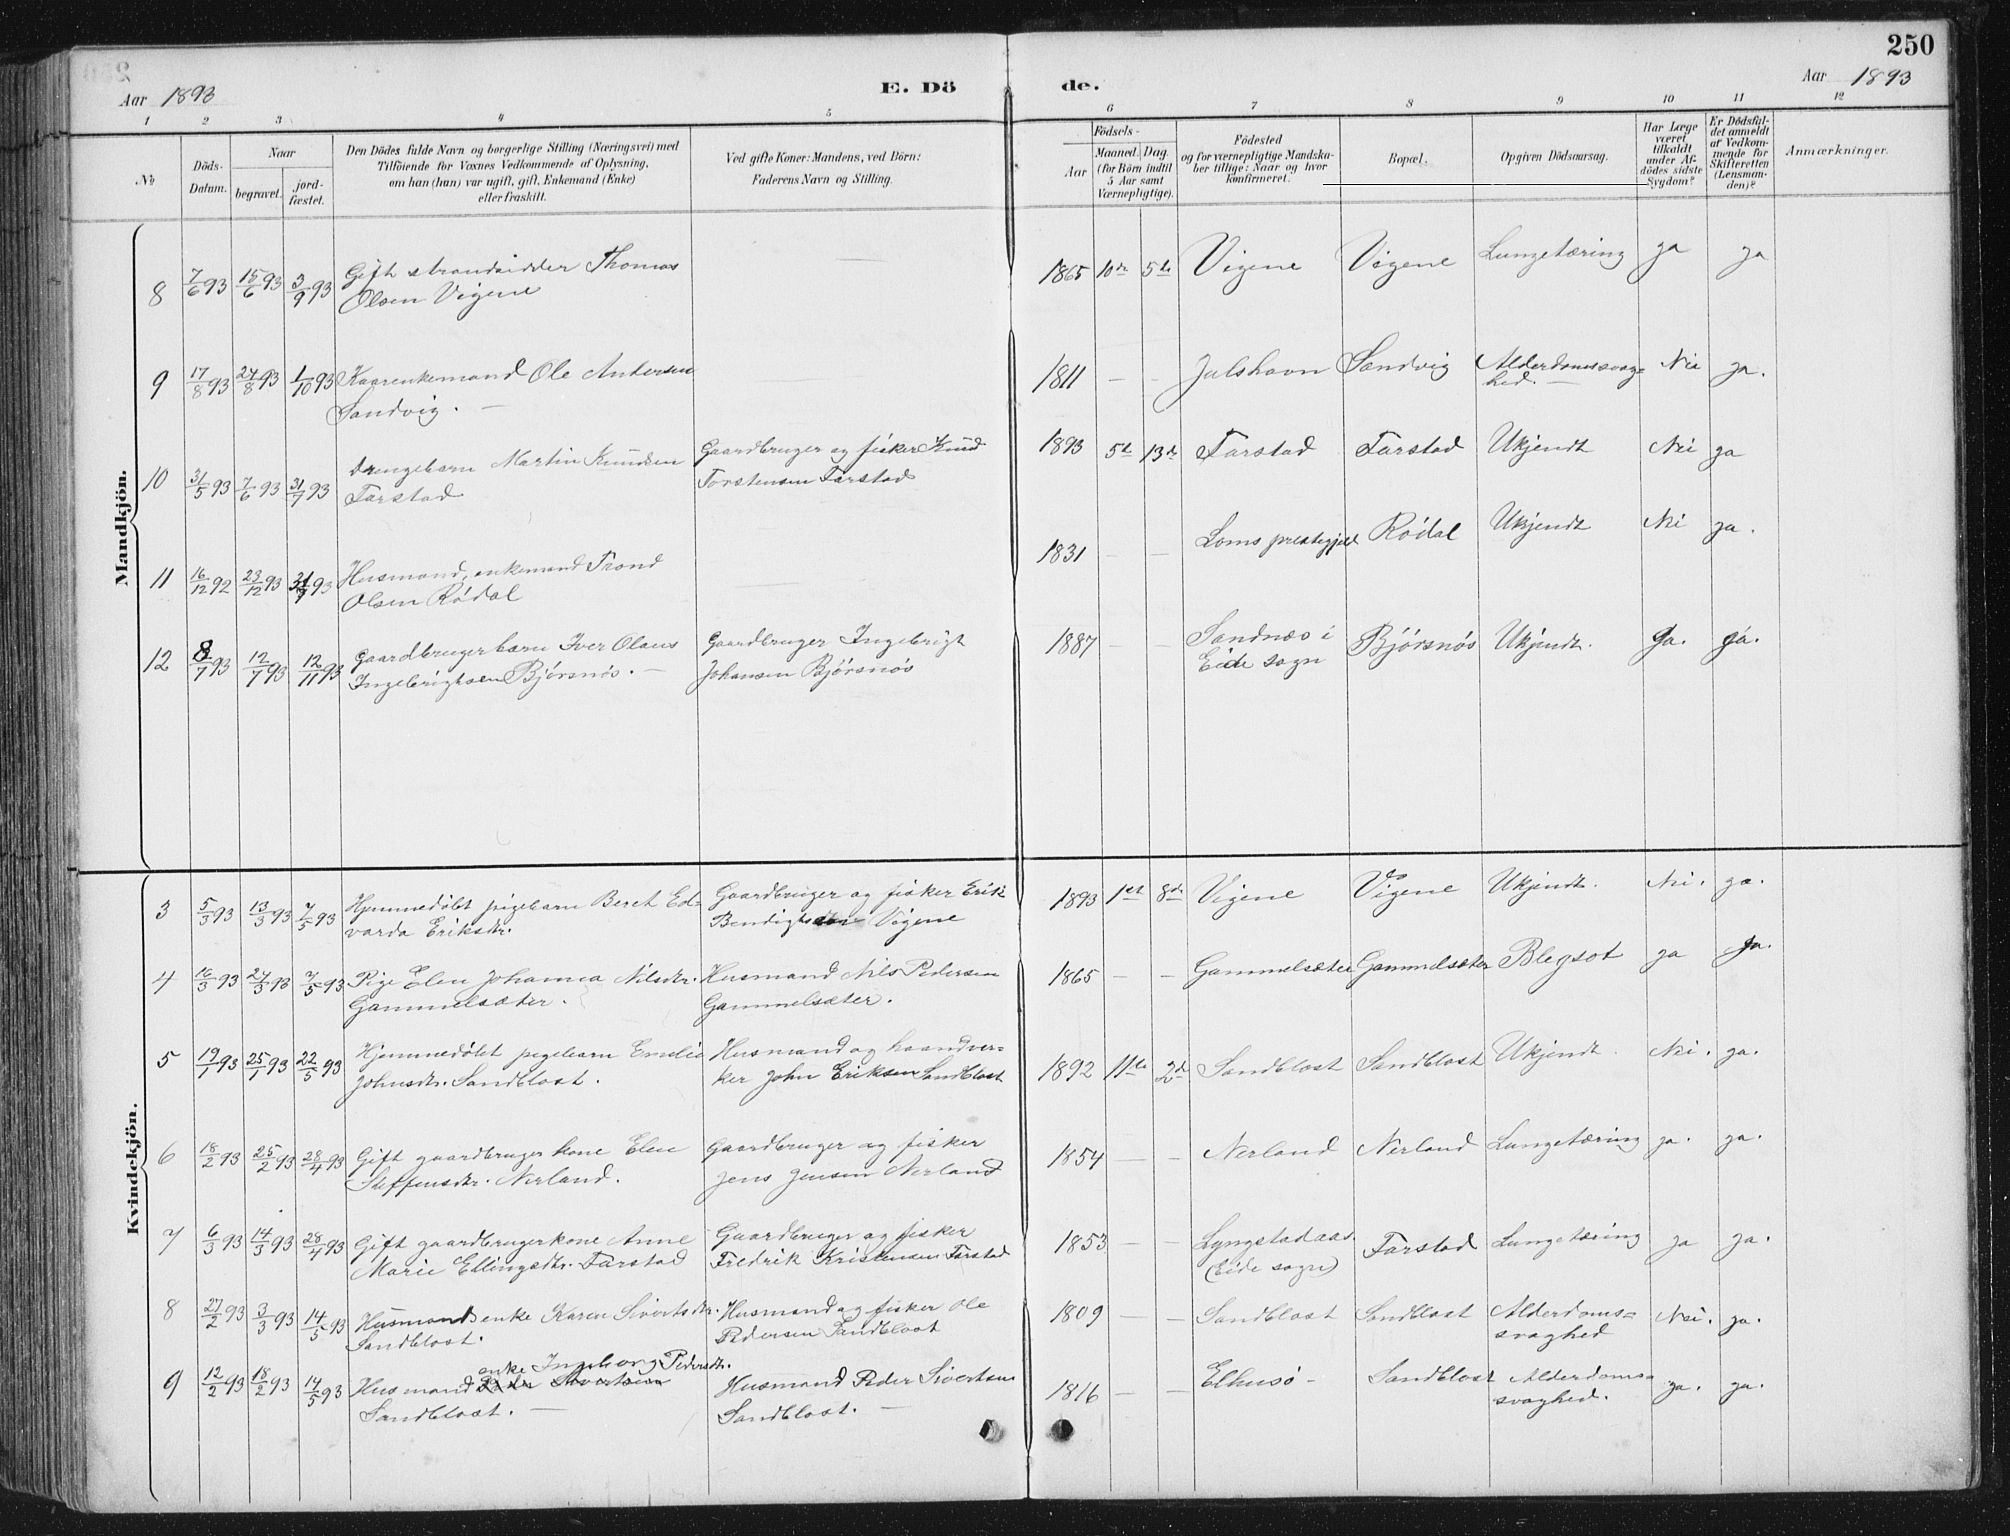 250
Aar 1893
E. Dö
de.
Aar 1893
1 2 3 4 5 6 7 8 9 10 11 12
№
Döds-
Datum.
Naar
begravet.
jord-
fæstet.
Den Dödes fulde Navn og borgerlige Stilling (Næringsvei) med
Tilföiende for Voxnes Vedkommende af Oplysning,
om han (hun) var ugift, gift, Enkemand (Enke)
eller fraskilt.
Ved gifte Koner: Mandens, ved Börn:
Faderens Navn og Stilling.
Födsels-
Aar
Maaned. Dag.
(for Börn indtil
5 Aar samt
Værnepligtige).
Födested
og for værnepligtige Mandska-
ber tillige: Naar og hvor
konfirmeret.
Bopæl.
Opgiven Dödsaarsag.
Har Læge
været
tilkaldt
under Af-
dödes sidste
Sygdom?
Er Dödsfal-
det anmeldt
af Vedkom-
mende for
Skifteretten
(Lensman-
den)?
Anmærkninger.
Mandkjön.
8 7/6 93 15/6 93 3/9 93 Gift strandsidder Thomas — 1865 10de 5te Vigene Vigene Lungetæring ja ja
Olsen Vigene
9 17/8 93 27/8 93 1/10 93 Kaarenkemand Ole Andersen 1811 — — Julshavn Sandvig Alderdomssvag= Nei ja.
Sandvig. — hed. —
10 31/5 93 7/6 93 31/7 93 drengebarn Martin Knudsen Gaardbruger og fisker Knud 1893 5te 13de Farstad Farstad Ukjendt Nei ja
Farstad Torstensen Farstad
11 16/12 92 23/12 93 31/7 93 Husmand, enkemand Trond — 1831 — — Loms prestegjeld Rödal Ukjendt Nei ja.
Olsen Rödal
12 8/7 93 12/7 93 12/11 93 Gaardbrugerbarn Iver Olaus Gaardbruger Ingebrigt 1887 — — Sandnæs i Björsnös Ukjendt. Ja. ja.
Ingebrigtsen Björsnös. — Johansen Björsnös Eide sogn
Kvindekjön.
3 5/3 93 13/3 93 7/5 93 Hjemmedöbt pigebarn Beret Ed= Gaardbruger og fisker Erik 1893 1st 8de Vigene Vigene Ukjendt. Nei. ja.
varda Eriksdtr. Bendigtsen Vigene
4 16/3 93 27/3 93 7/5 93 Pige Elen Johanna Nilsdtr. Husmand Nils Pedersen 1865 — — Gammelsæter Gammelsæter Blegsot ja Ja.
Gammelsæter. Gammelsæter.
5 19/1 93 25/1 93 22/5 93 Hjemmedöbt pigebarn Emelie Husmand og haandver= 1892 11te 2d Sandblost Sandblost Ukjendt. Nei. ja.
Johnsdtr. Sandblost. ker John Eriksen Sandblost
6 18/2 93 25/2 93 28/4 93 Gift gaardbruger kone Elen Gaardbruger og fisker 1854 — — Nerland Nerland Lungetæring ja. ja.
Steffensdtr. Nerland. Jens Jensen Nerland
7 6/3 93 14/3 93 28/4 93 Gift gaardbrugerkone Anne Gaardbruger og fisker 1853 — — Lyngstadaas Farstad Lungetæring ja ja.
Marie Ellingsdtr. Farstad Fredrik Kristensen Farstad (Eide sogn)
8 27/2 93 3/3 93 14/5 93 Husmandsenke Karen Sivertsdtr. Husmand og fisker Ole 1809 — — Sandblost Sandblost Alderdoms= Nei. ja.
Sandblost. Pedersen Sandblost svaghed
9 12/2 93 18/2 93 14/5 93 Husmand enke Ingeborg Pedersdtr. Husmand Peder Sivertsen 1816 — — Elhusö — Sandblost Alderdoms= ja. ja.
Sandblost. — Sandblost. — svaghed.